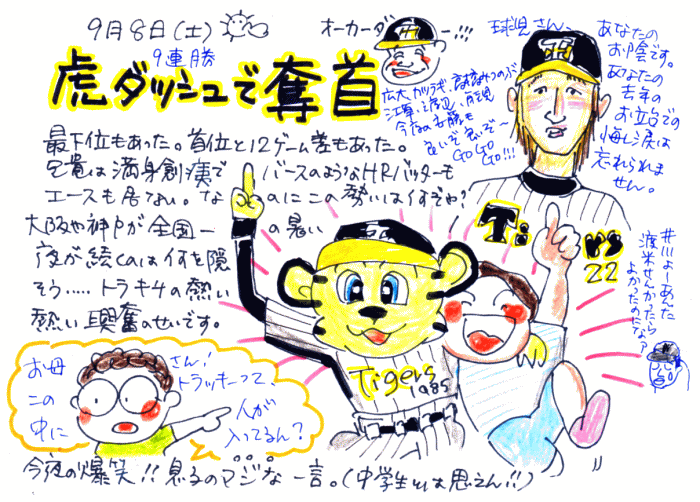 9月8日(土)
9連勝
虎ダッシュで奪首
オーカーダー!!!
広大、カツラギ、高橋みつのぶ
江草、渡辺、久保田
今夜の
良いぞ 良いぞ〜
GO GO
GO!!!
球児さん、
あなたの
お陰です。
あなたの
去年の
お立台での
悔し涙は
忘れられま
せん。
最下位もあった。首位と12ゲーム差もあった。
兄貴は満身創痍で バースのようなHRバッターも
エースも居ない。なのにこの勢いは何ぞや?
大阪や神戸が全国一の暑い
夜が続くのは何を隠
そう.....トラキチの熱い
熱い興奮のせいです。
Ti rs
22
井川よーあんた
渡米せんかったら
よかったのになぁ?
Tigers
1985
お母さん!
トラッキーって、
この中に
人が
入ってるん?
今夜の爆笑!!息子のマジな一言。(中学生とは思えん!!)